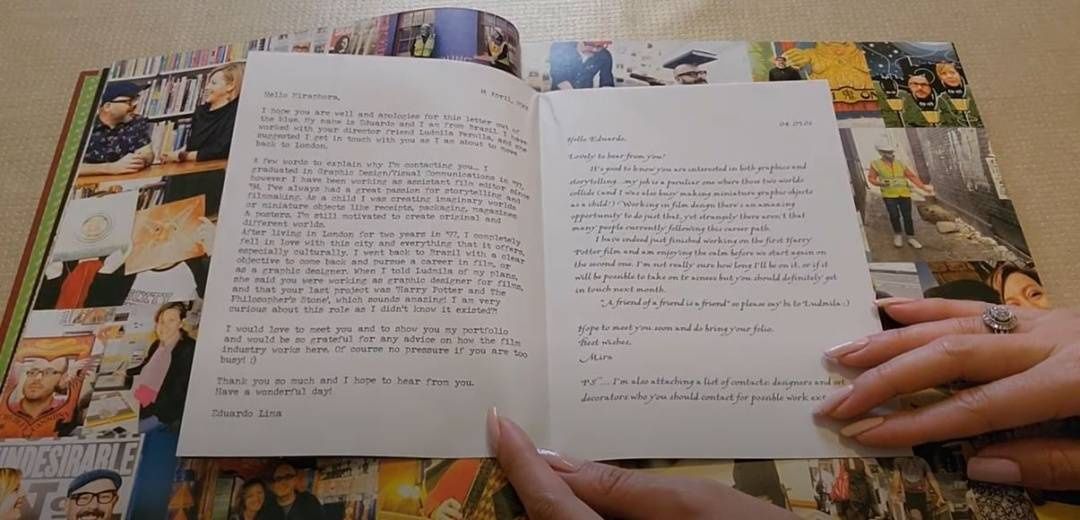 Hello Miraphora,
I hope you are well and apologies for this letter out of
the blue. My name is Eduardo and I am from Brazil. I have
worked with your director friend Ludmila and she
suggested I get in touch with you as I am about to move
back to London.
A few words to explain why I'm contacting you... I
graduated in Graphic Design/Visual Communications in
however I have been working as assistant film editor since
'94. I've always had a great passion for storytelling and
filmmaking. As a child I was creating imaginary worlds
or miniature objects like receipts, packaging, magazines
& posters. I'm still motivated to create original and
different worlds.
After living in London for two years in '97, I completely
fell in love with this city and everything that it offers,
especially culturally. I went back to Brazil with a clear
objective to come back and pursue a career in film, or
as a graphic designer. When I told Ludmila of my plans,
she said you were working as graphic designer for films,
and that your last project was 'Harry Potter and The
Philosopher's Stone', which sounds amazing! I am very
curious about this role as I didn't know it existed?!
I would love to meet you and to show you my portfolio
and would be so grateful for any advice on how the film
industry works here. Of course no pressure if you are too
busy! :)
Thank you so much and I hope to hear from you.
Have a wonderful day!
Eduardo Lima
Hello Eduardo,
Lovely to hear from you!
It's good to know you are interested in both graphics and
storytelling...my job is a peculiar one where those two worlds
collide (and I was also busy making miniature graphic objects
as a child!) Working in film design there's an amazing
opportunity to do just that, yet strangely there aren't that
many people currently following this career path.
I have indeed just finished working on the first Harry
Potter film and am enjoying the calm before we start again on
the second one. I'm not really sure how long I'll be on it, or if it
will be possible to take on trainees but you should definitely get
in touch next month.
"A friend of a friend is a friend" so please say hi to Ludmila :)
Hope to meet you soon and do bring your folio.
Best wishes,
Mira
PS"... I'm also attaching a list of contacts: designers and set
decorators who you should contact for possible work
UNDESIRABLE